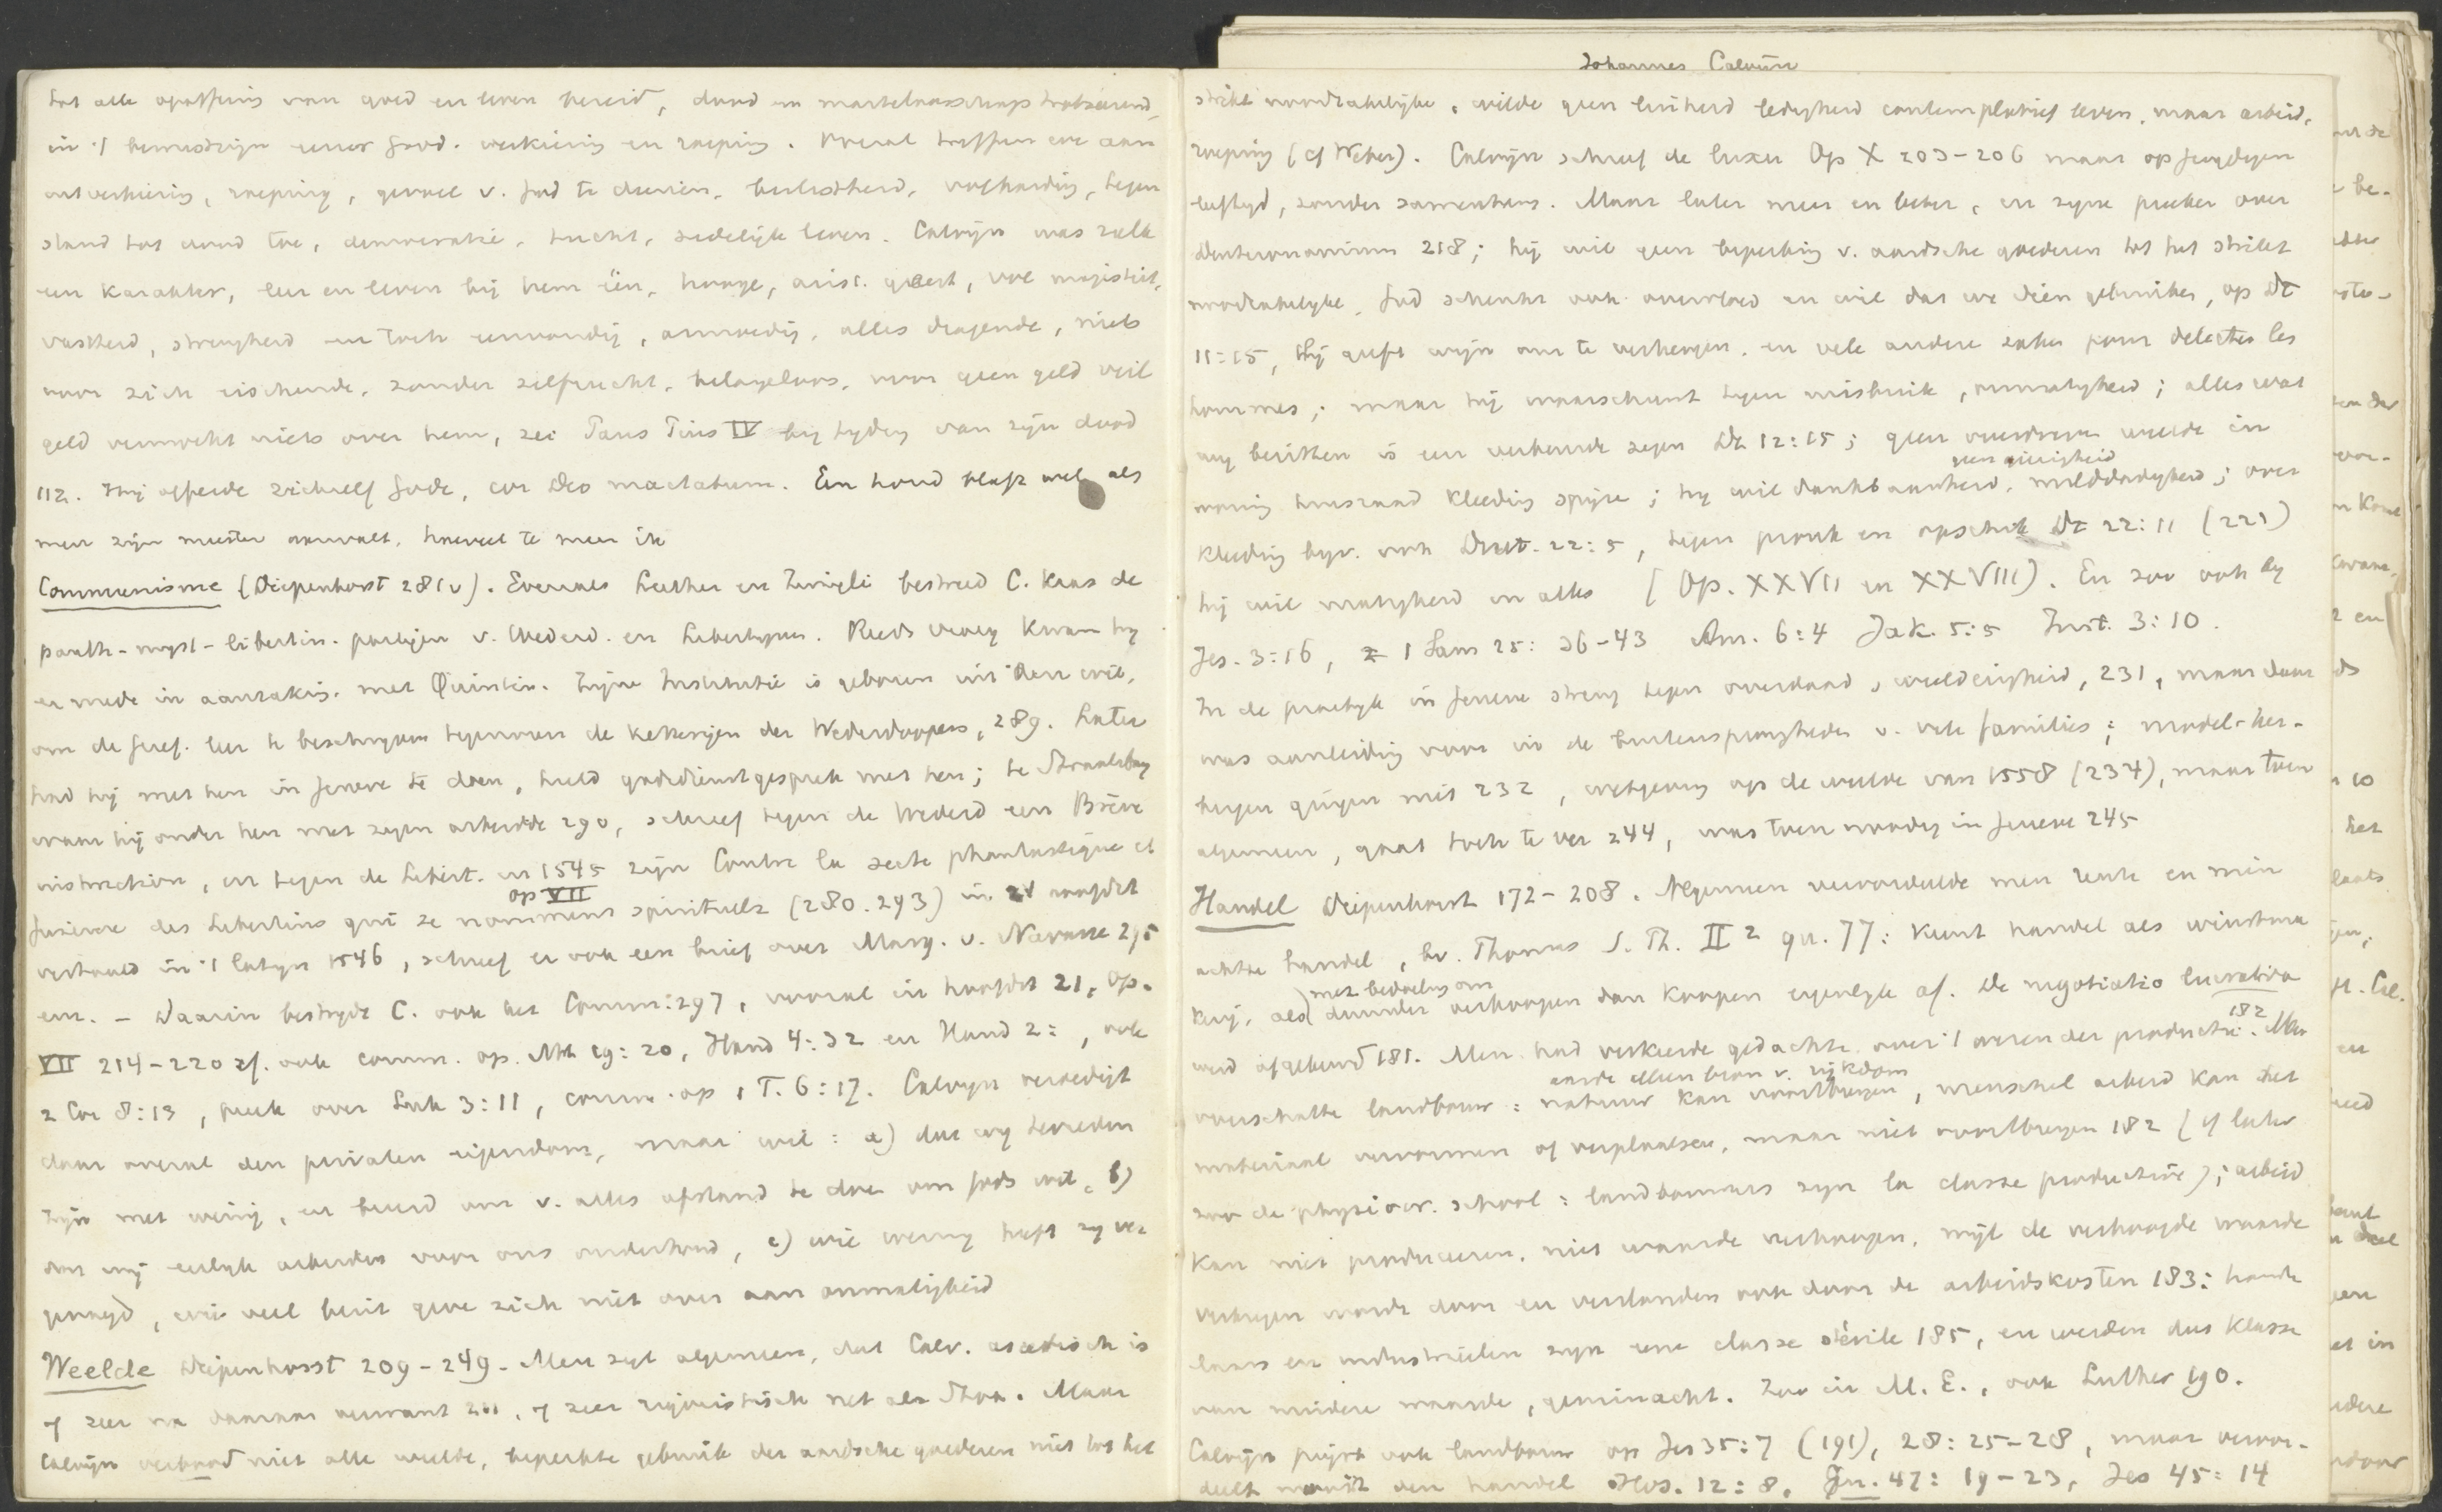 tot alle opoffering van goed en leven bereid, dood en martelaarschap trotseerend,
in 't bewustzijn eener Godd. verkiezing en roeping. Overal treffen we aan
uitverkiering, roeping, gevoel v. God te dienen, beslistheid, volharding, tegen
stand tot dood toe, democratie, tucht, zedelijk leven. Calvijn was zulk
een karakter, leer en leven bij hem één, hooge, arist. geest, vol majesteit,
vastheid, strengheid en toch eenvoudig, armoedig, alles dragende, niets
voor zich eischende, zonder zelfzucht, belangeloos, voor geen geld veil
geld vermocht niets over hem, zei Paus Pius IV bij tyding van zijn dood
112. Hij offerde zichzelf Gode, cor Deo mactatum. Een hond blaft wel als
men zijn meester aanvalt, hoeveel te meer ik
Communisme (Diepenhorst 281v). Evenals Luther en Zwingli bestreed C. Kaas de
panth-myst-libertin. partijen v. Wederd. en Libertijnen. Reeds vroeg kwam hij
er mede in aanraking, met Quintin. Zijne Institutie is geboren uit den wil,
om de Geref. leer te beschrijven tegenover de ketterijen der Wederdoopers, 289. Later
had hij met hen in Geneve te doen, hield godsdienstgesprek met hen; te Straatsburg
waar hij onder hen met zegen arbeidde 290, schreef tegen de Wederd een Brève
instruction, en tegen de Libert. in 1545 zijn Contre la secte phantastique et
furieuse des Libertins qui se nomment spirituelz (280.293) in 24 hoofdst
op VII
vertaald in 't latyn 1546, schreef er ook een brief over Marg. v. Navarre 295
enz. – Daarin bestrydt C. ook het Comm: 297, vooral in hoofdst 21, Op.
VII 214-220 cf. ook comm. op. Mt 19:20, Hand 4:32 en Hand 2: , ook
2 Cor 8:13, preek over Luk 3:11, comm. op 1 T. 6:17. Calvyn verdedigt
daar overal den privaten eigendom, maar wil: a) dat wij tevreden
zijn met weinig, en bereid om v. alles afstand te doen om Gods wil, b)
dat wij eerlyk arbeiden voor ons onderhoud, c) wie weinig heeft zij ver
genoegd, wie veel bezit geve zich niet over aan onmatigheid
Weelde Diepenhorst 209-249. Men zegt algemeen, dat Calv. ascetisch is
of zeer na daaraan verwant 211, of zeer rigoristisch net als Stoa. Maar
Calvijn verbood niet alle weelde, beperkte gebruik der aardsche goederen niet tot het
Johannes Calvijn
strikt noodzakelijke, wilde geen luiheid ledigheid contemplatief leven, maar arbeid,
roeping (cf Weber). Calvijn schreef de luxu Op X 203-206 maar op jeugdigen
leeftyd, zonder samenhang. Maar later meer en beter, in zyne preeken over
Deuteronomium 218; hij wil geen beperking v. aardsche goederen tot het strikt
noodzakelyke. God schenkt ook overvloed en wil dat we dien gebruiken, op Dt
11:15, Hij geeft wijn om te verheugen, en vele andere zaken pour delecter les
hommes; maar hij waarschuwt tegen misbruik, onmatigheid; alles wat
wij bezitten is een verbeurde zegen Dt 12:15; geen overdreven weelde in
geen gierigheid
woning huisraad kleeding spijze; hij wil dankbaarheid, milddadigheid; over
kleeding bijv. ook Deut. 22:5, tegen pronk en opschik Dt 22:11 (221)
hij wil matigheid in alles (Op. XXVII en XXVIII). En zoo ook bij
Jes. 3:16, 1 Sam 25:36-43 Am. 6:4 Jak. 5:5 Inst. 3:10.
In de practijk in Geneve streng tegen overdaad, weelderigheid, 231, maar daar
was aanleiding voor in de buitensporigheden v. vele families; model-her-
bergen gingen niet 232, wetgeving op de weelde van 1558 (234), maar toen
algemeen, gaat toch te ver 244, was toen noodig in Geneve 245
Handel Diepenhorst 172-208. Algemeen veroordeelde men rente en min
achtte handel, bv. Thomas S. Th. II 2 qu. 77: keurt handel als winstma
kerij, als met bedoeling om duurder verkoopen dan koopen eigenlyk af. De negotiatio lucrativa
werd afgekeurd 181. Men had verkeerde gedachte over 't wezen der productie. 182 Men
aarde alleen bron v. rijkdom
overschatte landbouw: natuur kan voortbrengen, menschel arbeid kan het
materiaal vervormen of verplaatsen, maar niet voortbrengen 182 (cf later
zoo de physiocr. school: landbouwers zyn la classe productive); arbeid
kan niet produceeren, niet waarde verhoogen, wijl de verhoogde waarde
verkregen wordt door en verslonden ook door de arbeidskosten 183: hande
laars en industrieelen zijn une classe stérile 185, en werden dus klasse
van mindere waarde, geminacht. Zoo in M. E., ook Luther 190.
Calvijn prijst ook landbouw op Jes 35:7 (191), 28:25-28, maar veroor-
deelt nooit den handel Hos. 12:8, Gn. 47:19-23, Jes 45:14